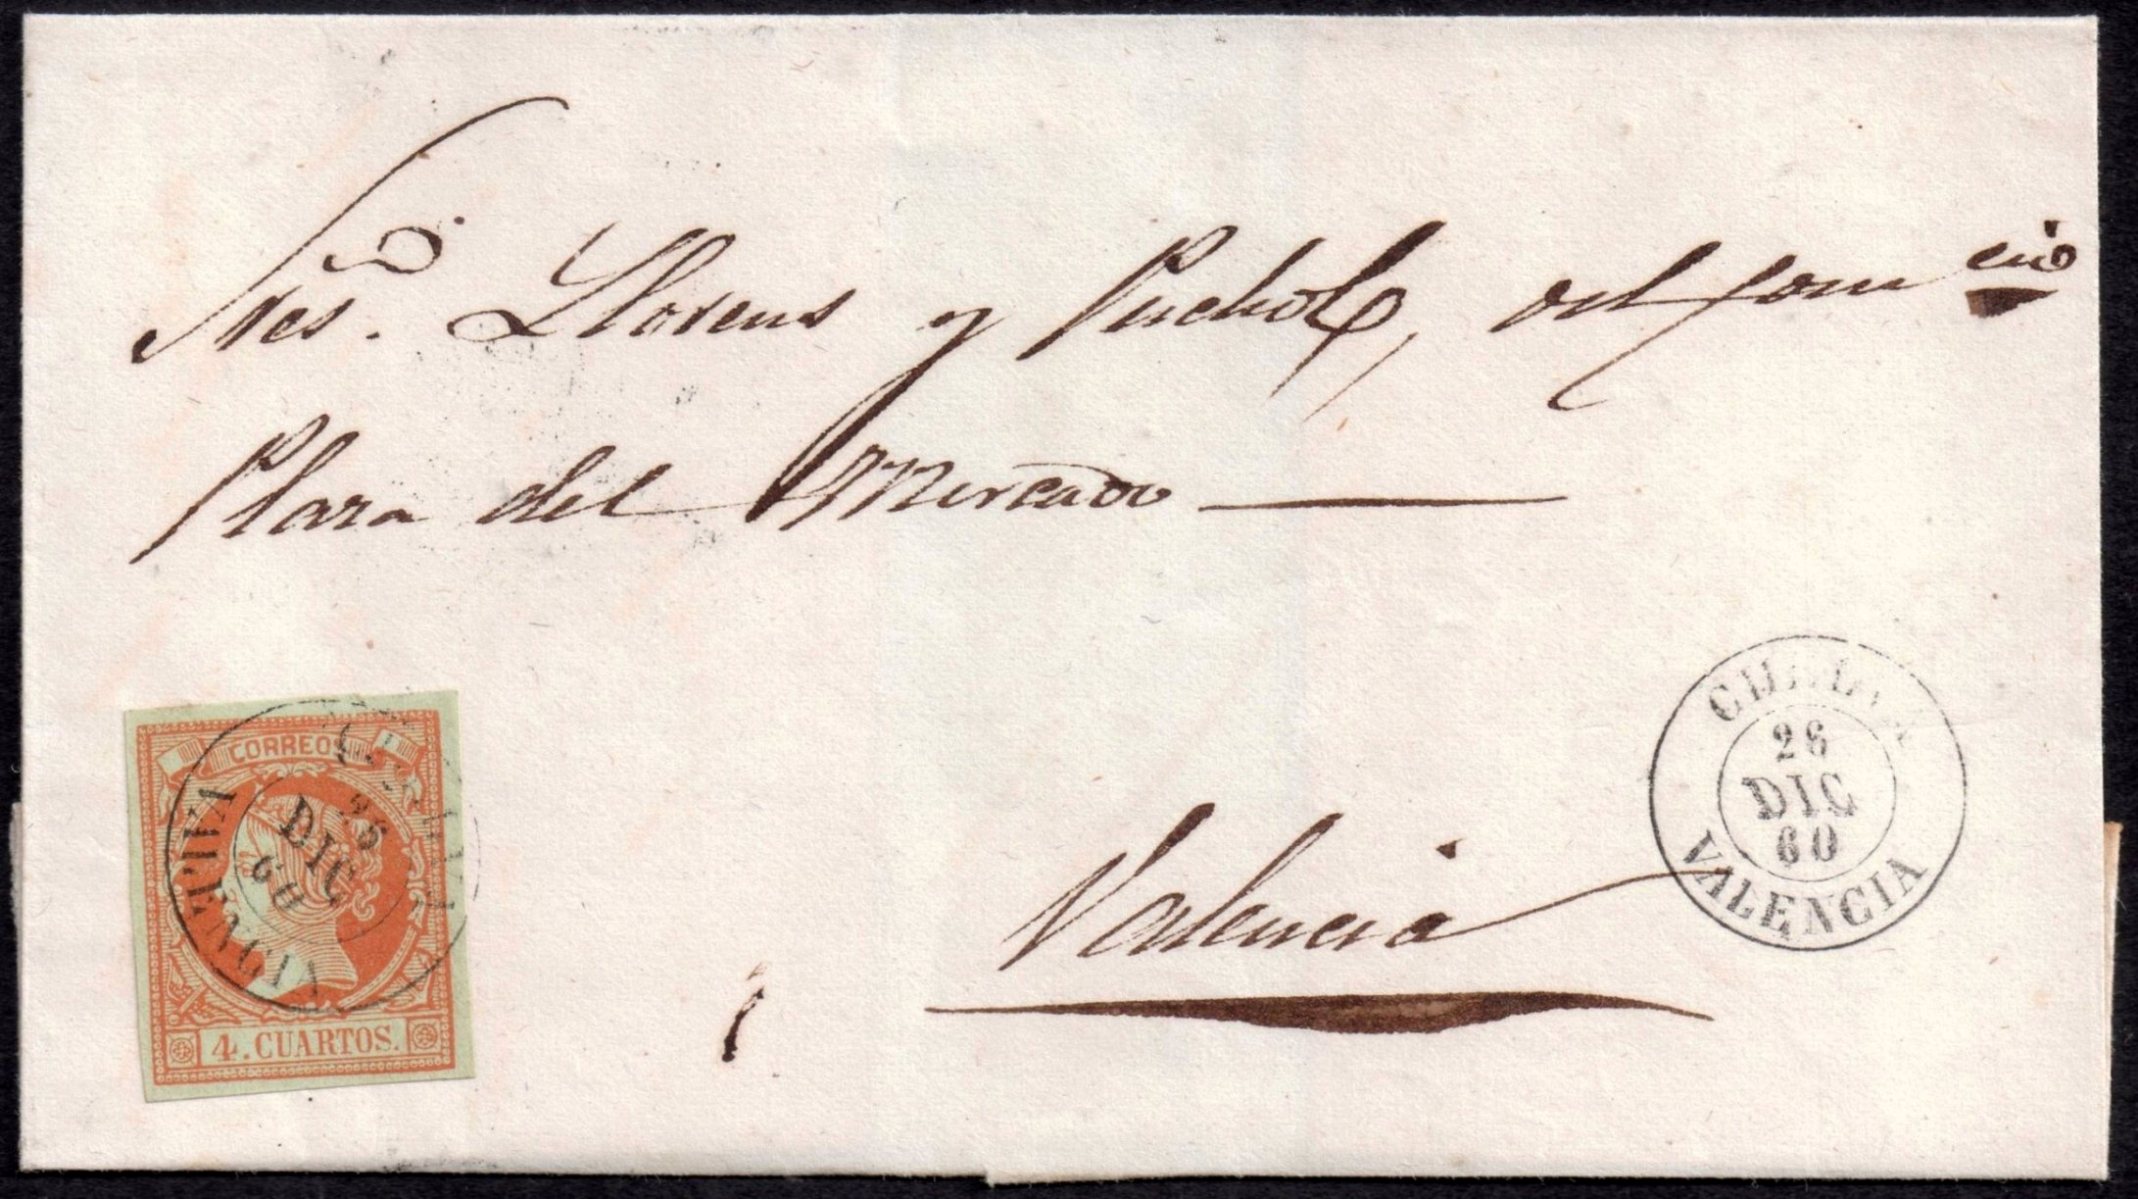 Sres. Dn. Llorens y Puchol, del Comcio
Plaza del Mercado
Valencia
CORREOS
4. CUARTOS.
26
DIC
60
VALENCIA
26
DIC
60
VALENCIA